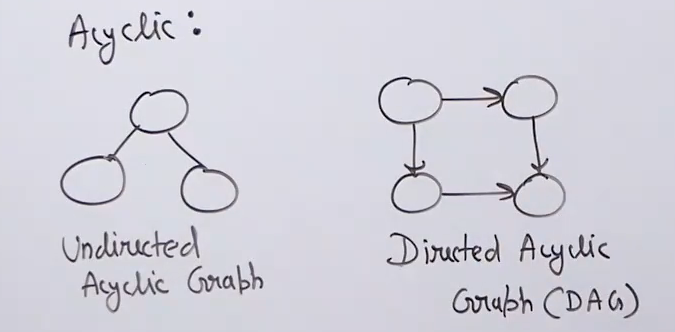 Acyclic:
Undirected
Acyclic Graph
Directed Acyclic
Graph (DAG)